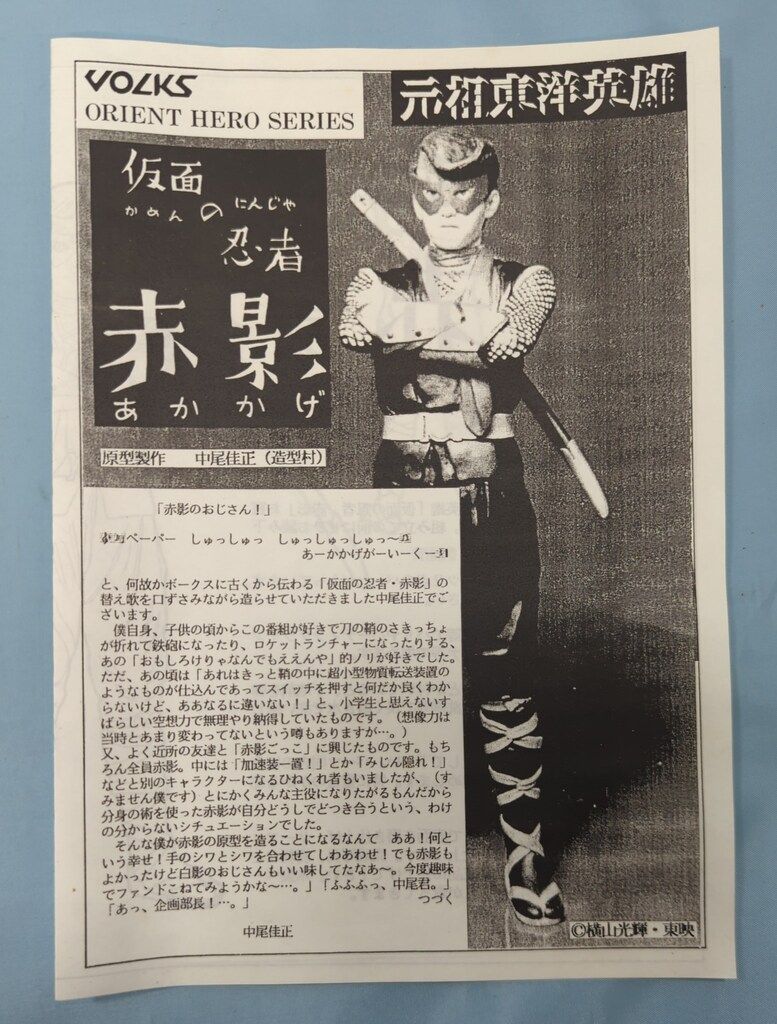 VOLKS
ORIENT HERO SERIES
元祖東洋英雄
仮面
かめん
の
にんじゃ
忍者
赤影
あかかげ
原型製作　中尾佳正(造型村)
「赤影のおじさん!」
ペーパー　しゅっしゅっ　しゅっしゅっしゅっ〜♫
あーかかげがーいーくー♫
と、何故かボークスに古くから伝わる「仮面の忍者・赤影」の
替え歌を口ずさみながら造らせていただきました中尾佳正でご
ざいます。
僕自身、子供の頃からこの番組が好きで刀の鞘のさきっちょ
が折れて鉄砲になったり、ロケットランチャーになったりする、
あの「おもしろけりゃなんでもええんや」的ノリが好きでした。
ただ、あの頃は「あれはきっと鞘の中に超小型物質転送装置の
ようなものが仕込んであってスイッチを押すと何だか良くわか
らないけど、ああなるに違いない!」と、小学生と思えないす
ばらしい空想力で無理やり納得していたものです。(想像力は
当時とあまり変わってないという噂もありますが…。)
又、よく近所の友達と「赤影ごっこ」に興じたものです。もち
ろん全員赤影。中には「加速装一置!」とか「みじん隠れ!」
などと別のキャラクターになるひねくれ者もいましたが、(す
みません僕です)とにかくみんな主役になりたがるもんだから
分身の術を使った赤影が自分どうしでどつき合うという、わけ
の分からないシチュエーションでした。
そんな僕が赤影の原型を造ることになるなんて　ああ!何と
いう幸せ!手のシワとシワを合わせてしわあわせ!でも赤影も
よかったけど白影のおじさんもいい味してたなあ〜。今度趣味
でファンドこねてみようかな〜…。」「ふふふっ、中尾君。」
「あっ、企画部長!…。」　つづく
中尾佳正
©横山光輝・東映